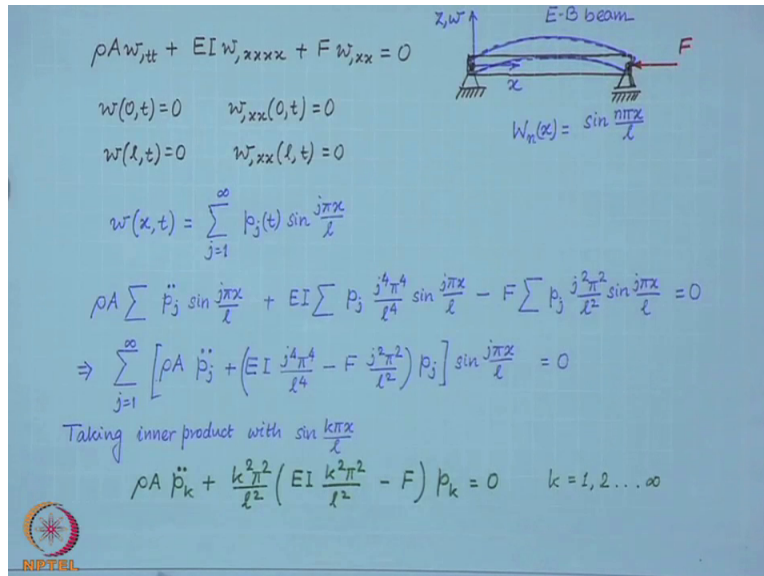 z,w E-B beam
ρAw,tt + EIw,xxxx + Fw,xx = 0
F
x
w(0,t)=0 w,xx(0,t)=0
Wn(x) = sin nπx/l
w(l,t)=0 w,xx(l,t)=0
w(x,t) = ∑_{j=1}^{∞} pj(t) sin jπx/l
ρA∑ p̈j sin jπx/l + EI∑ pj j⁴π⁴/l⁴ sin jπx/l − F∑ pj j²π²/l² sin jπx/l = 0
⇒ ∑_{j=1}^{∞} [ρA p̈j + (EI j⁴π⁴/l⁴ − F j²π²/l²) pj] sin jπx/l = 0
Taking inner product with sin kπx/l
ρA p̈k + k²π²/l² (EI k²π²/l² − F) pk = 0 k = 1, 2 ... ∞
NPTEL